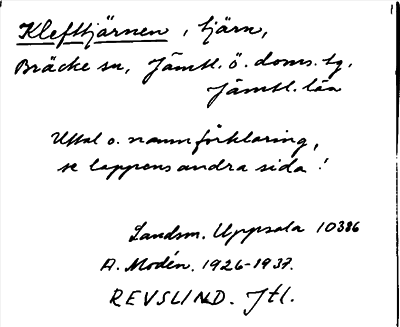 Klefttjärnen, tjärn,
Bräcke sn, Jämtl. ö. doms. tg.
Jämtl. län
Uttal o. namnförklaring,
se lappens andra sida!
Landsm. Uppsala 10386
A. Modén. 1926-1937.
REVSLIND. Jtl.